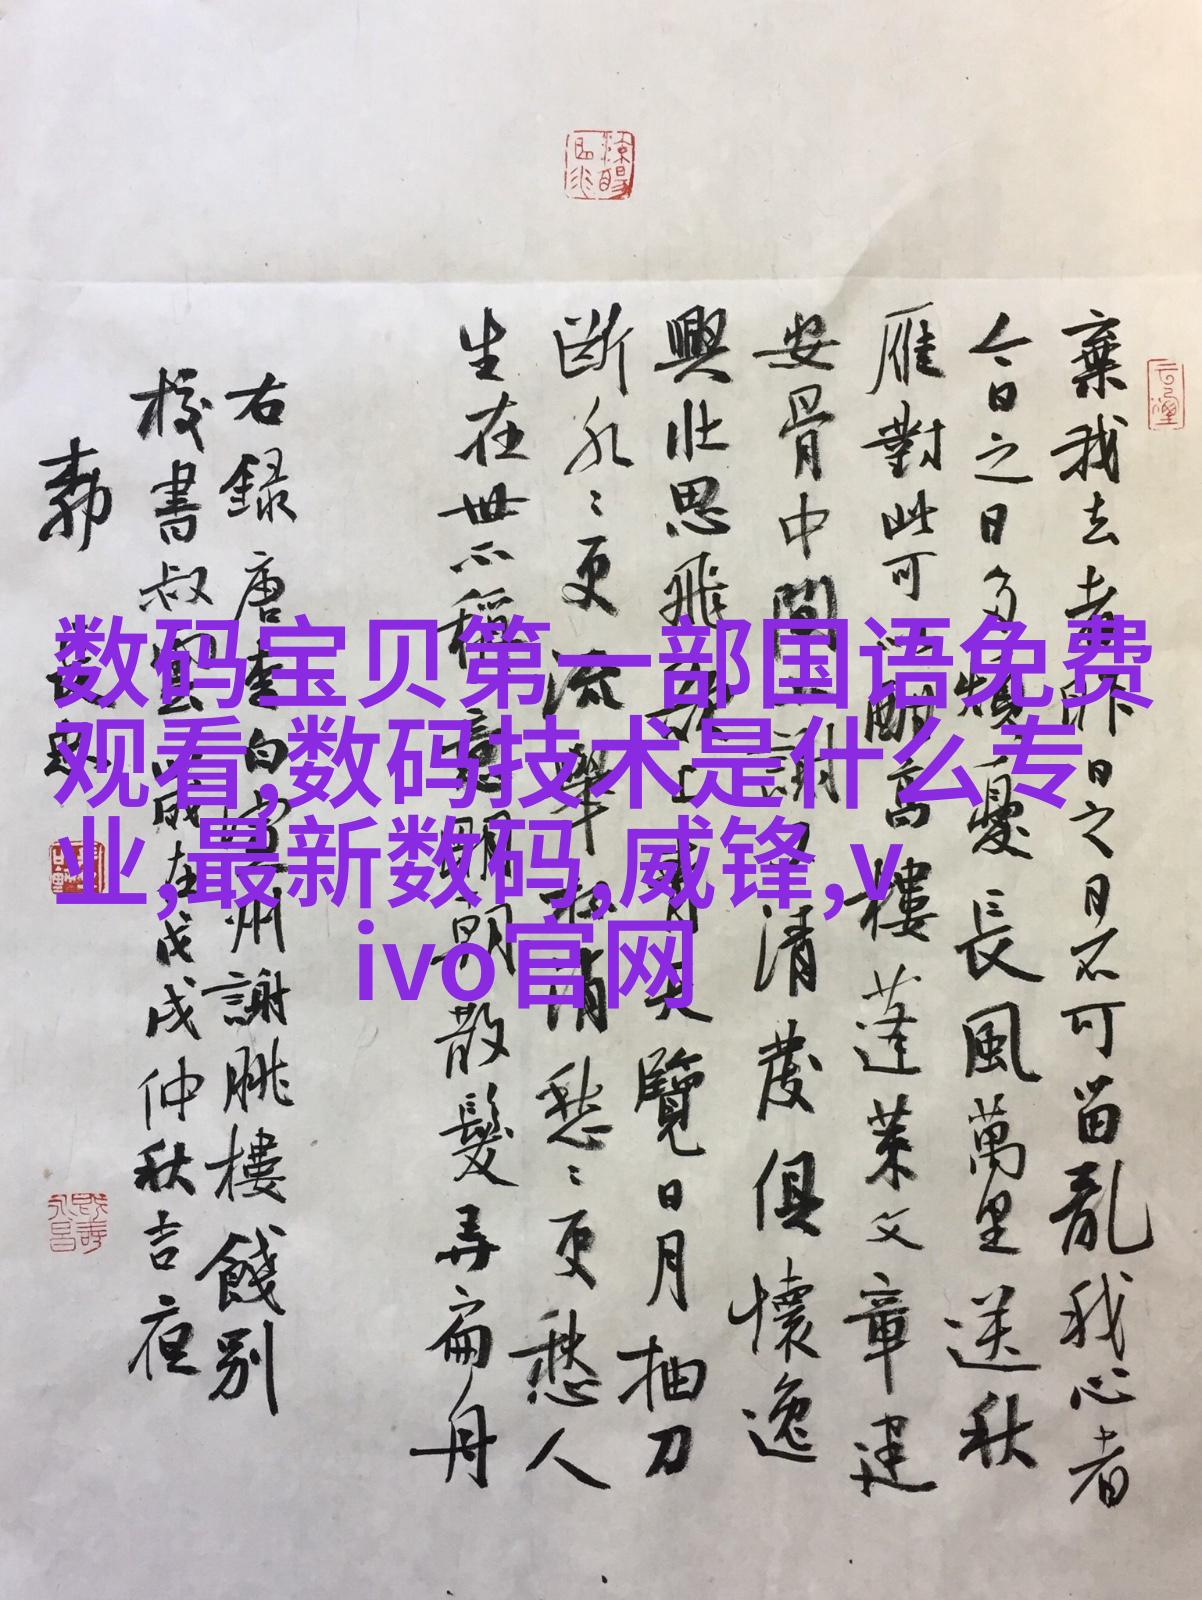 棄我去者昨日之日不可留亂我心者
今日之日多煩憂長風萬里送秋
雁對此可以酣高樓蓬萊文章建
安骨中間小謝又清發俱懷逸
興壯思飛欲上青天覽日月抽刀
斷水〻更流舉杯消愁〻更愁人
生在世不稱意明朝散髮弄扁舟
右録唐李白宣州謝朓樓餞別
校書叔雲歲在戊戌仲秋吉夜
数码宝贝第一部国语免费
观看,数码技术是什么专
业,最新数码,威锋,v
ivo官网